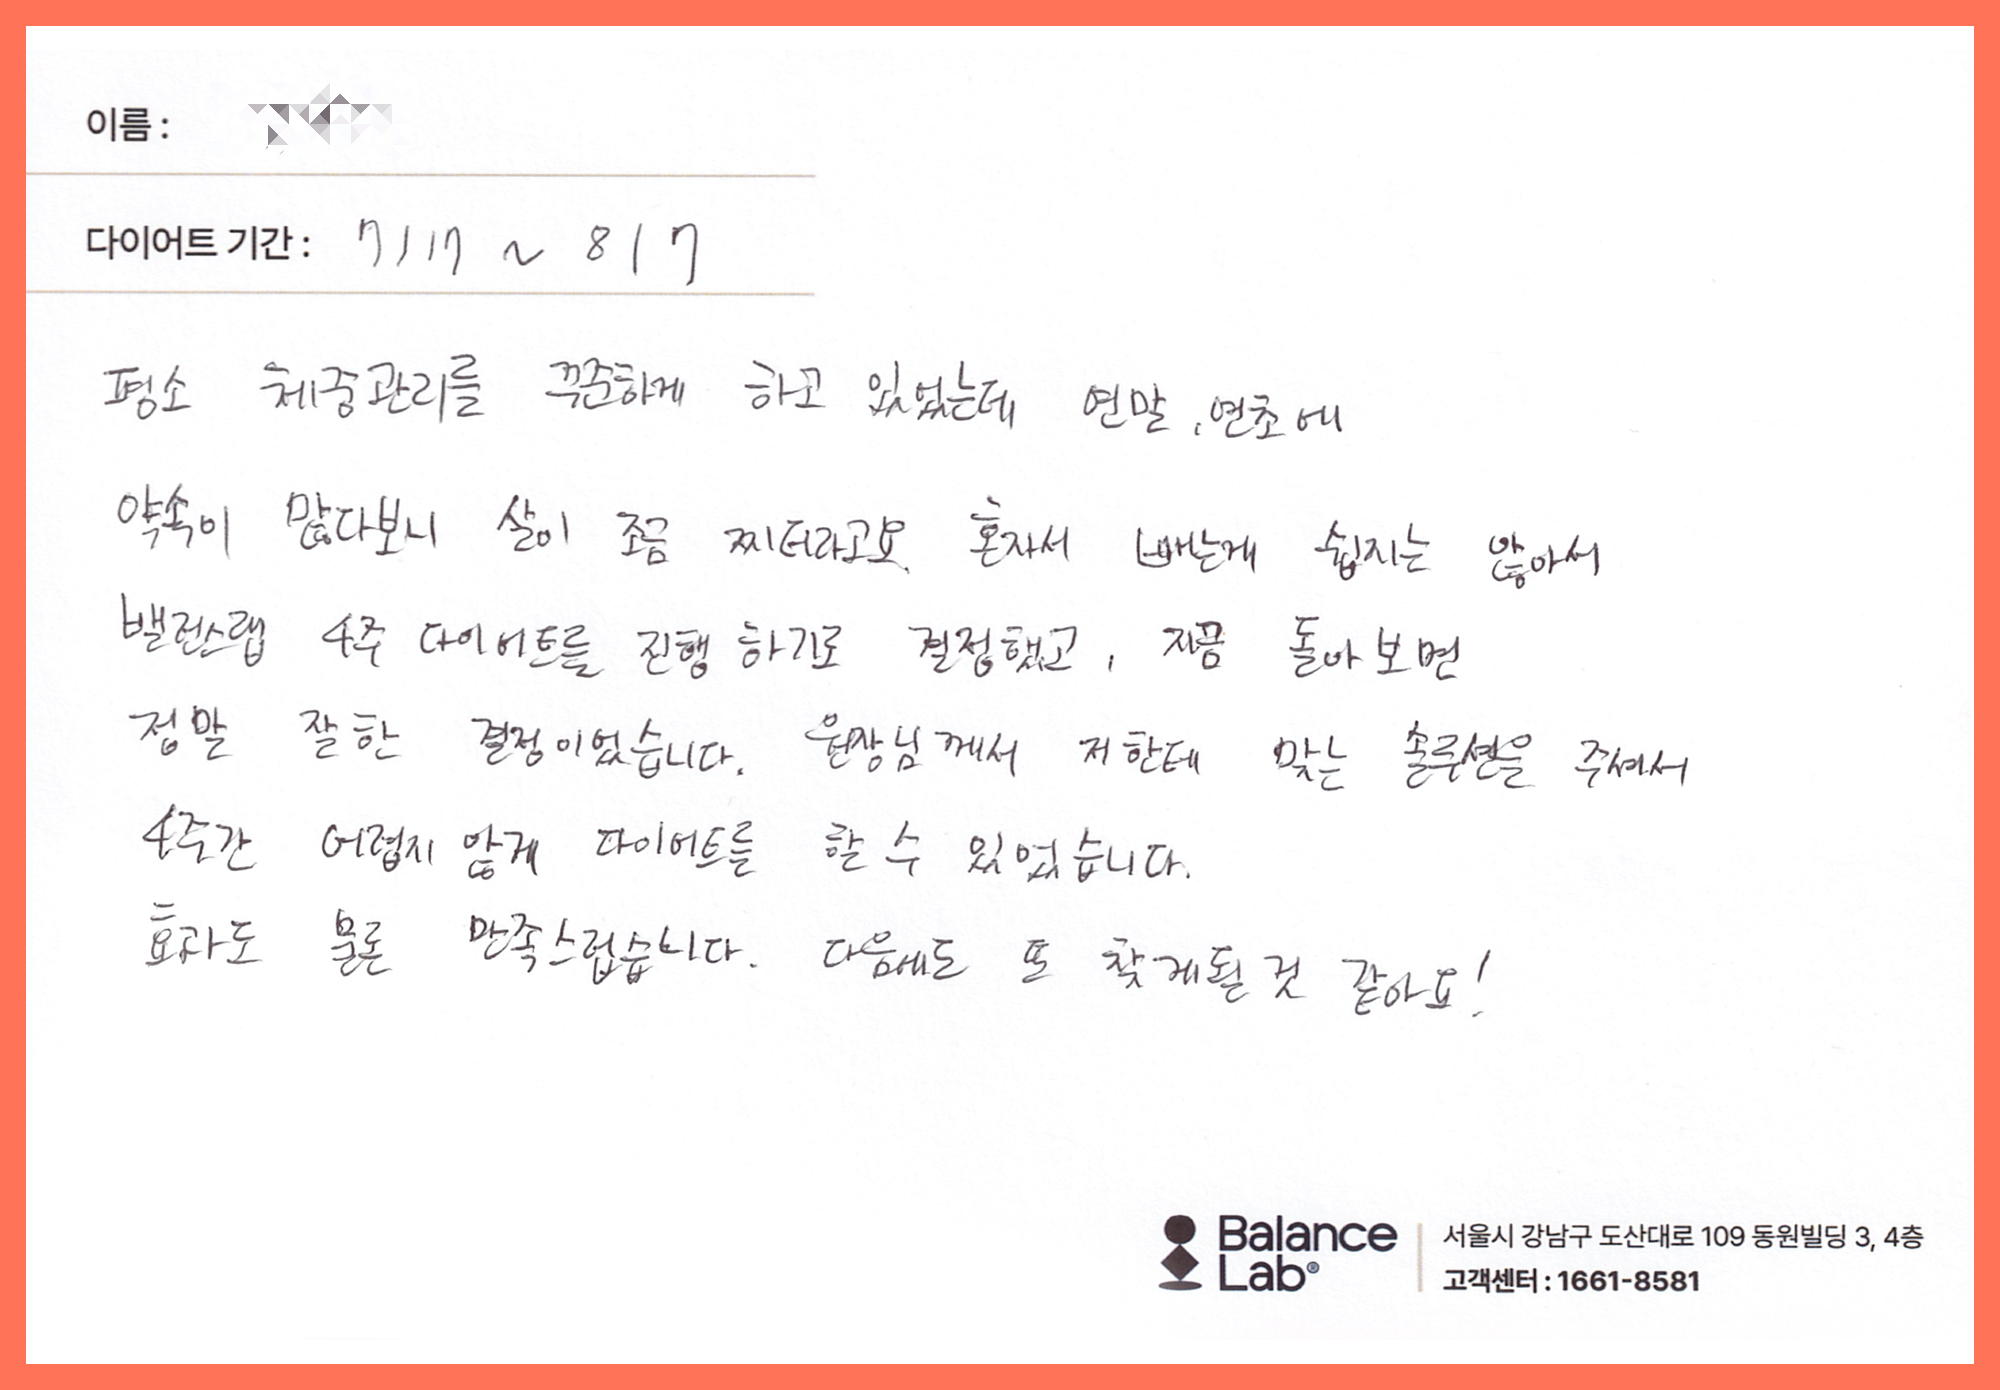 이름 :
다이어트 기간 : 7/17 ~ 8/7
평소 체중관리를 꾸준하게 하고 있었는데 연말, 연초에
약속이 많다보니 살이 조금 찌더라고요. 혼자서 빼는게 쉽지는 않아서
밸런스랩 4주 다이어트를 진행 하기로 결정했고, 지금 돌아보면
정말 잘한 결정이었습니다. 원장님께서 저한테 맞는 솔루션을 주셔서
4주간 어렵지 않게 다이어트를 할 수 있었습니다.
효과도 물론 만족스럽습니다. 다음에도 또 찾게될 것 같아요!
Balance Lab®
서울시 강남구 도산대로 109 동원빌딩 3, 4층
고객센터 : 1661-8581